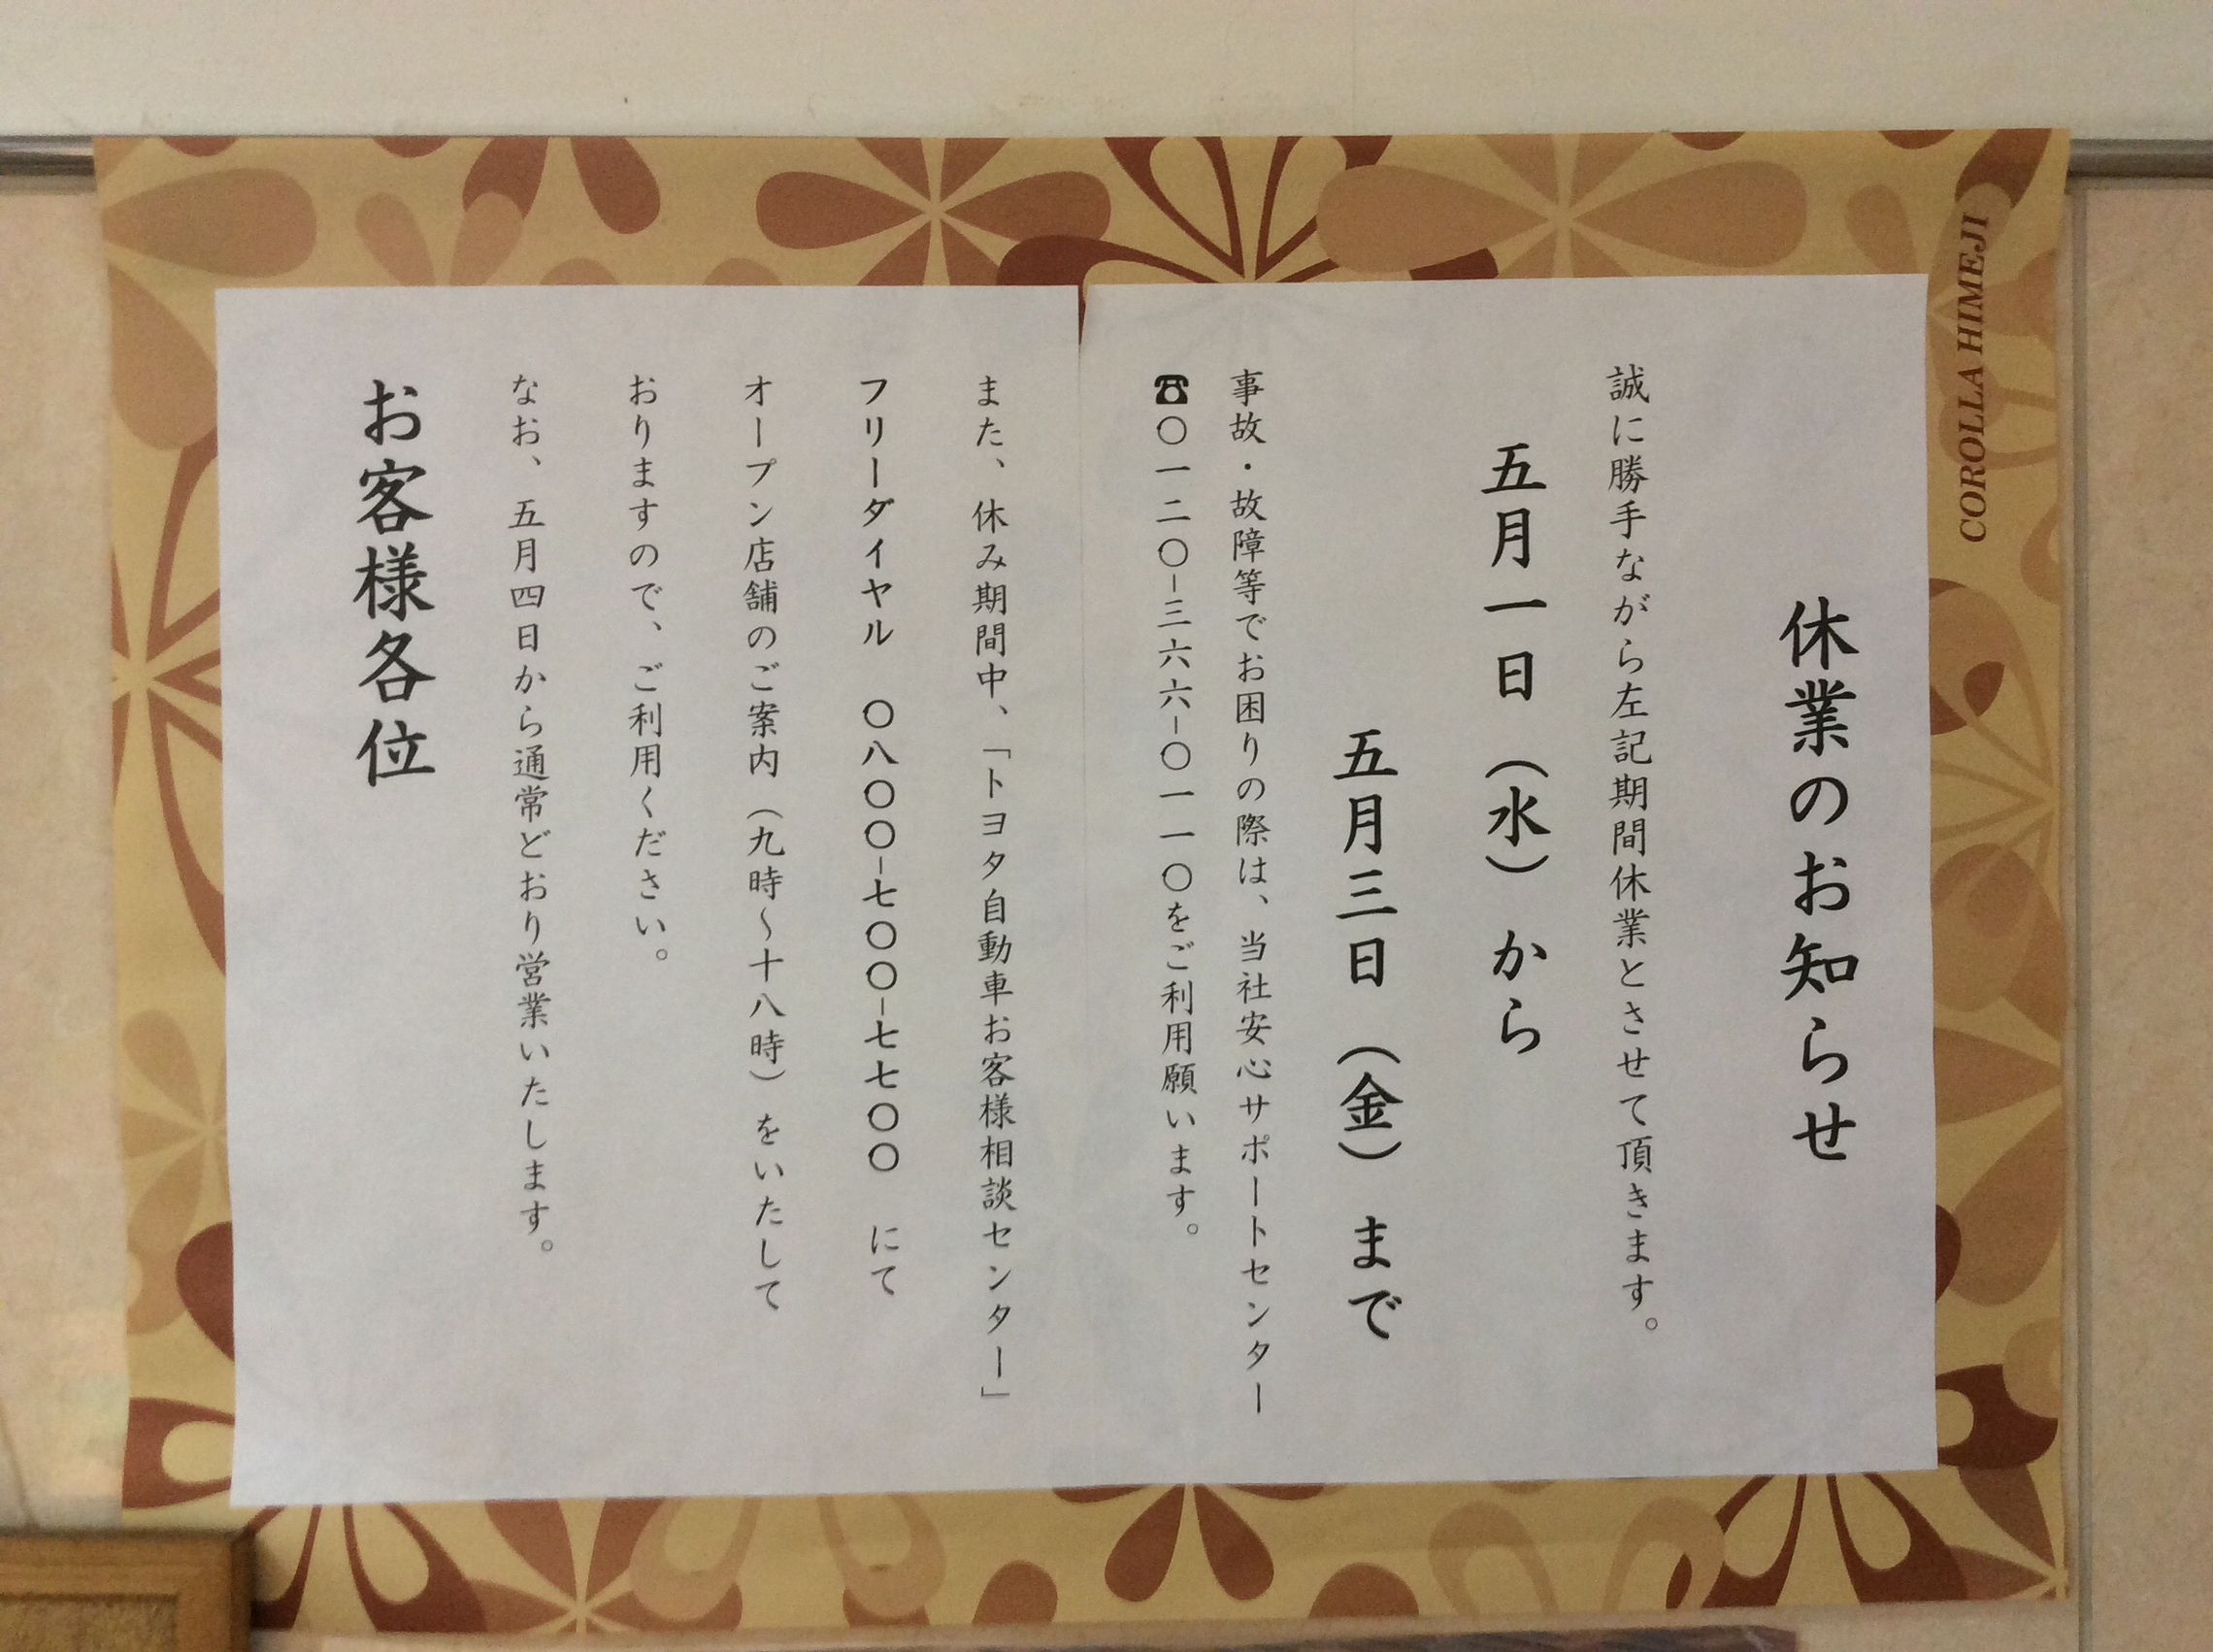 休業のお知らせ
誠に勝手ながら左記期間休業とさせて頂きます。
五月一日（水）から
五月三日（金）まで
事故・故障等でお困りの際は、当社安心サポートセンター
☎〇一二〇-三六六-〇一一〇をご利用願います。
また、休み期間中、「トヨタ自動車お客様相談センター」
フリーダイヤル　〇八〇〇-七〇〇-七七〇〇　にて
オープン店舗のご案内（九時～十八時）をいたして
おりますので、ご利用ください。
なお、五月四日から通常どおり営業いたします。
お客様各位
COROLLA HIMEJI